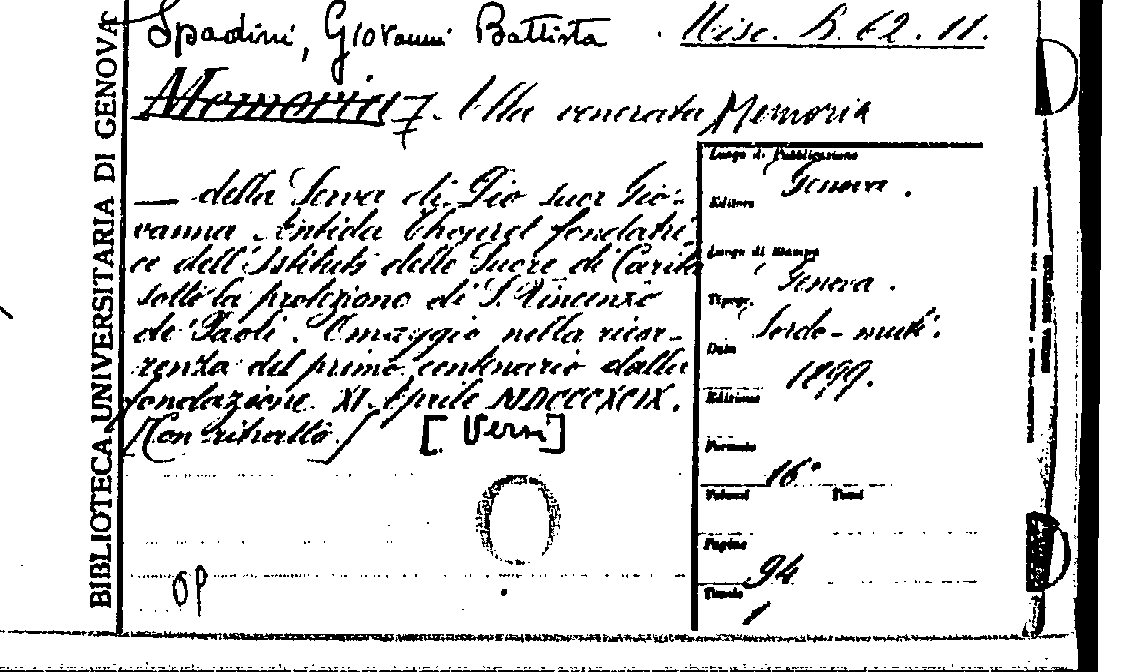 BIBLIOTECA UNIVERSITARIA DI GENOVA
Spadini, Giovanni Battista . Misc. B. 62. 11.
Memoria 7. Alla venerata Memoria
— della Serva di Dio suor Gio-
vanna Antida Thouret fondatri-
ce dell'Istituto delle Suore di Carità
sotto la protezione di S. Vincenzo
de' Paoli. Omaggio nella ricor-
renza del primo centenario dalla
fondazione XI Aprile MDCCCXCIX.
[Con ritratto.] [Versi]
OP
Luogo di Pubblicazione
Genova.
Editore
Luogo di Stampa
Genova.
Tipogr.
Sordo-muti.
Data
1899.
Edizione
Formato
16°
Volumi Tomi
Pagine
94
Tavole
1